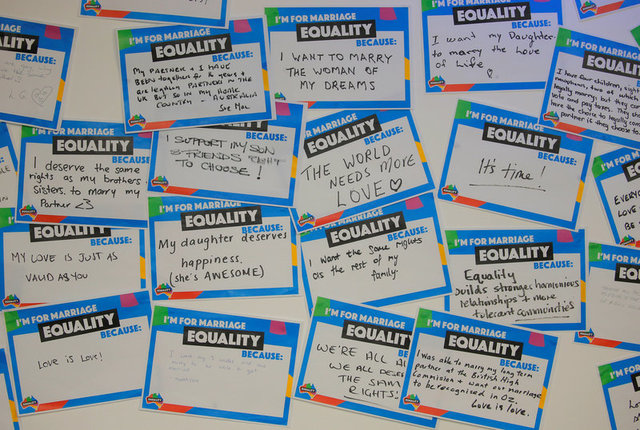 BECAUSE:
I'M FOR MARRIAGE
EQUALITY
BECAUSE:
My PARTNER & I HAVE
BEEN together for 16 years &
are legally PARTNERS IN THE
UK BUT SO IN my Home
COUNTRY - AUSTRALIA
I'M FOR MARRIAGE
EQUALITY
BECAUSE:
I WANT TO MARRY
THE WOMAN OF
MY DREAMS
BECAUSE:
I want my Daughter
to marry the Love
of Life
I'M FOR MARRIAGE
EQUALITY
BECAUSE:
I have four children,
legally marry; but they
work and pay taxes.
have the choice to legally
partner if they choose
I'M FOR MARRIAGE
EQUALITY
BECAUSE:
I deserve the same
rights as my brothers &
Sisters. to marry my
Partner <3
EQUALITY
BECAUSE:
I SUPPORT MY SON
& FRIENDS RIGHT
TO CHOOSE!
I'M FOR MARRIAGE
EQUALITY
BECAUSE:
THE WORLD
NEEDS MORE
LOVE ♡
I'M FOR MARRIAGE
EQUALITY
BECAUSE:
It's time!
EVERY
LOVE
BE
EQUALITY
BECAUSE:
MY LOVE IS JUST AS
VALID AS YOU
EQUALITY
BECAUSE:
My daughter deserves
happiness.
(she's AWESOME)
I'M FOR MARRIAGE
EQUALITY
BECAUSE:
I want the same rights
as the rest of my
family.
I'M FOR MARRIAGE
EQUALITY
BECAUSE:
Equality
builds stronger harmonious
relationships & more
tolerant communities
I'M FOR MARRIAGE
EQUALITY
BECAUSE:
Love is Love!
I'M FOR MARRIAGE
EQUALITY
BECAUSE:
I'M FOR MARRIAGE
EQUALITY
BECAUSE:
WE'RE ALL
WE ALL
THE SAME
RIGHTS!
I'M FOR MARRIAGE
EQUALITY
BECAUSE:
I was able to marry my long term
partner at the British High
Commission & want our marriage
to be recognised in Oz.
Love is love.